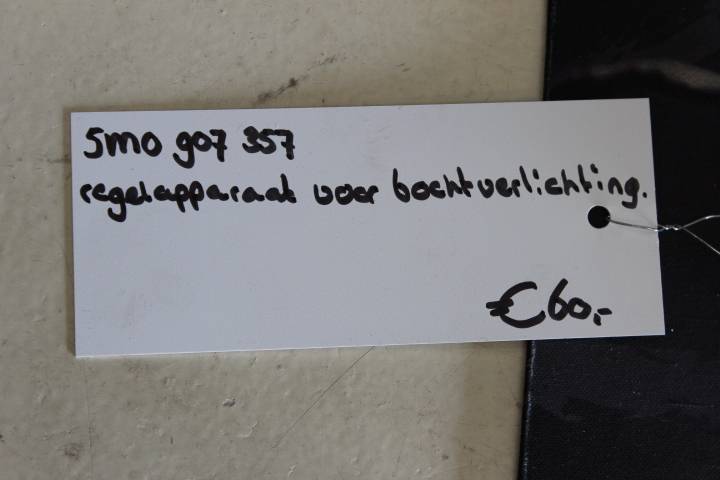 5M0 907 357
regelapparaat voor bochtverlichting.
€60,-